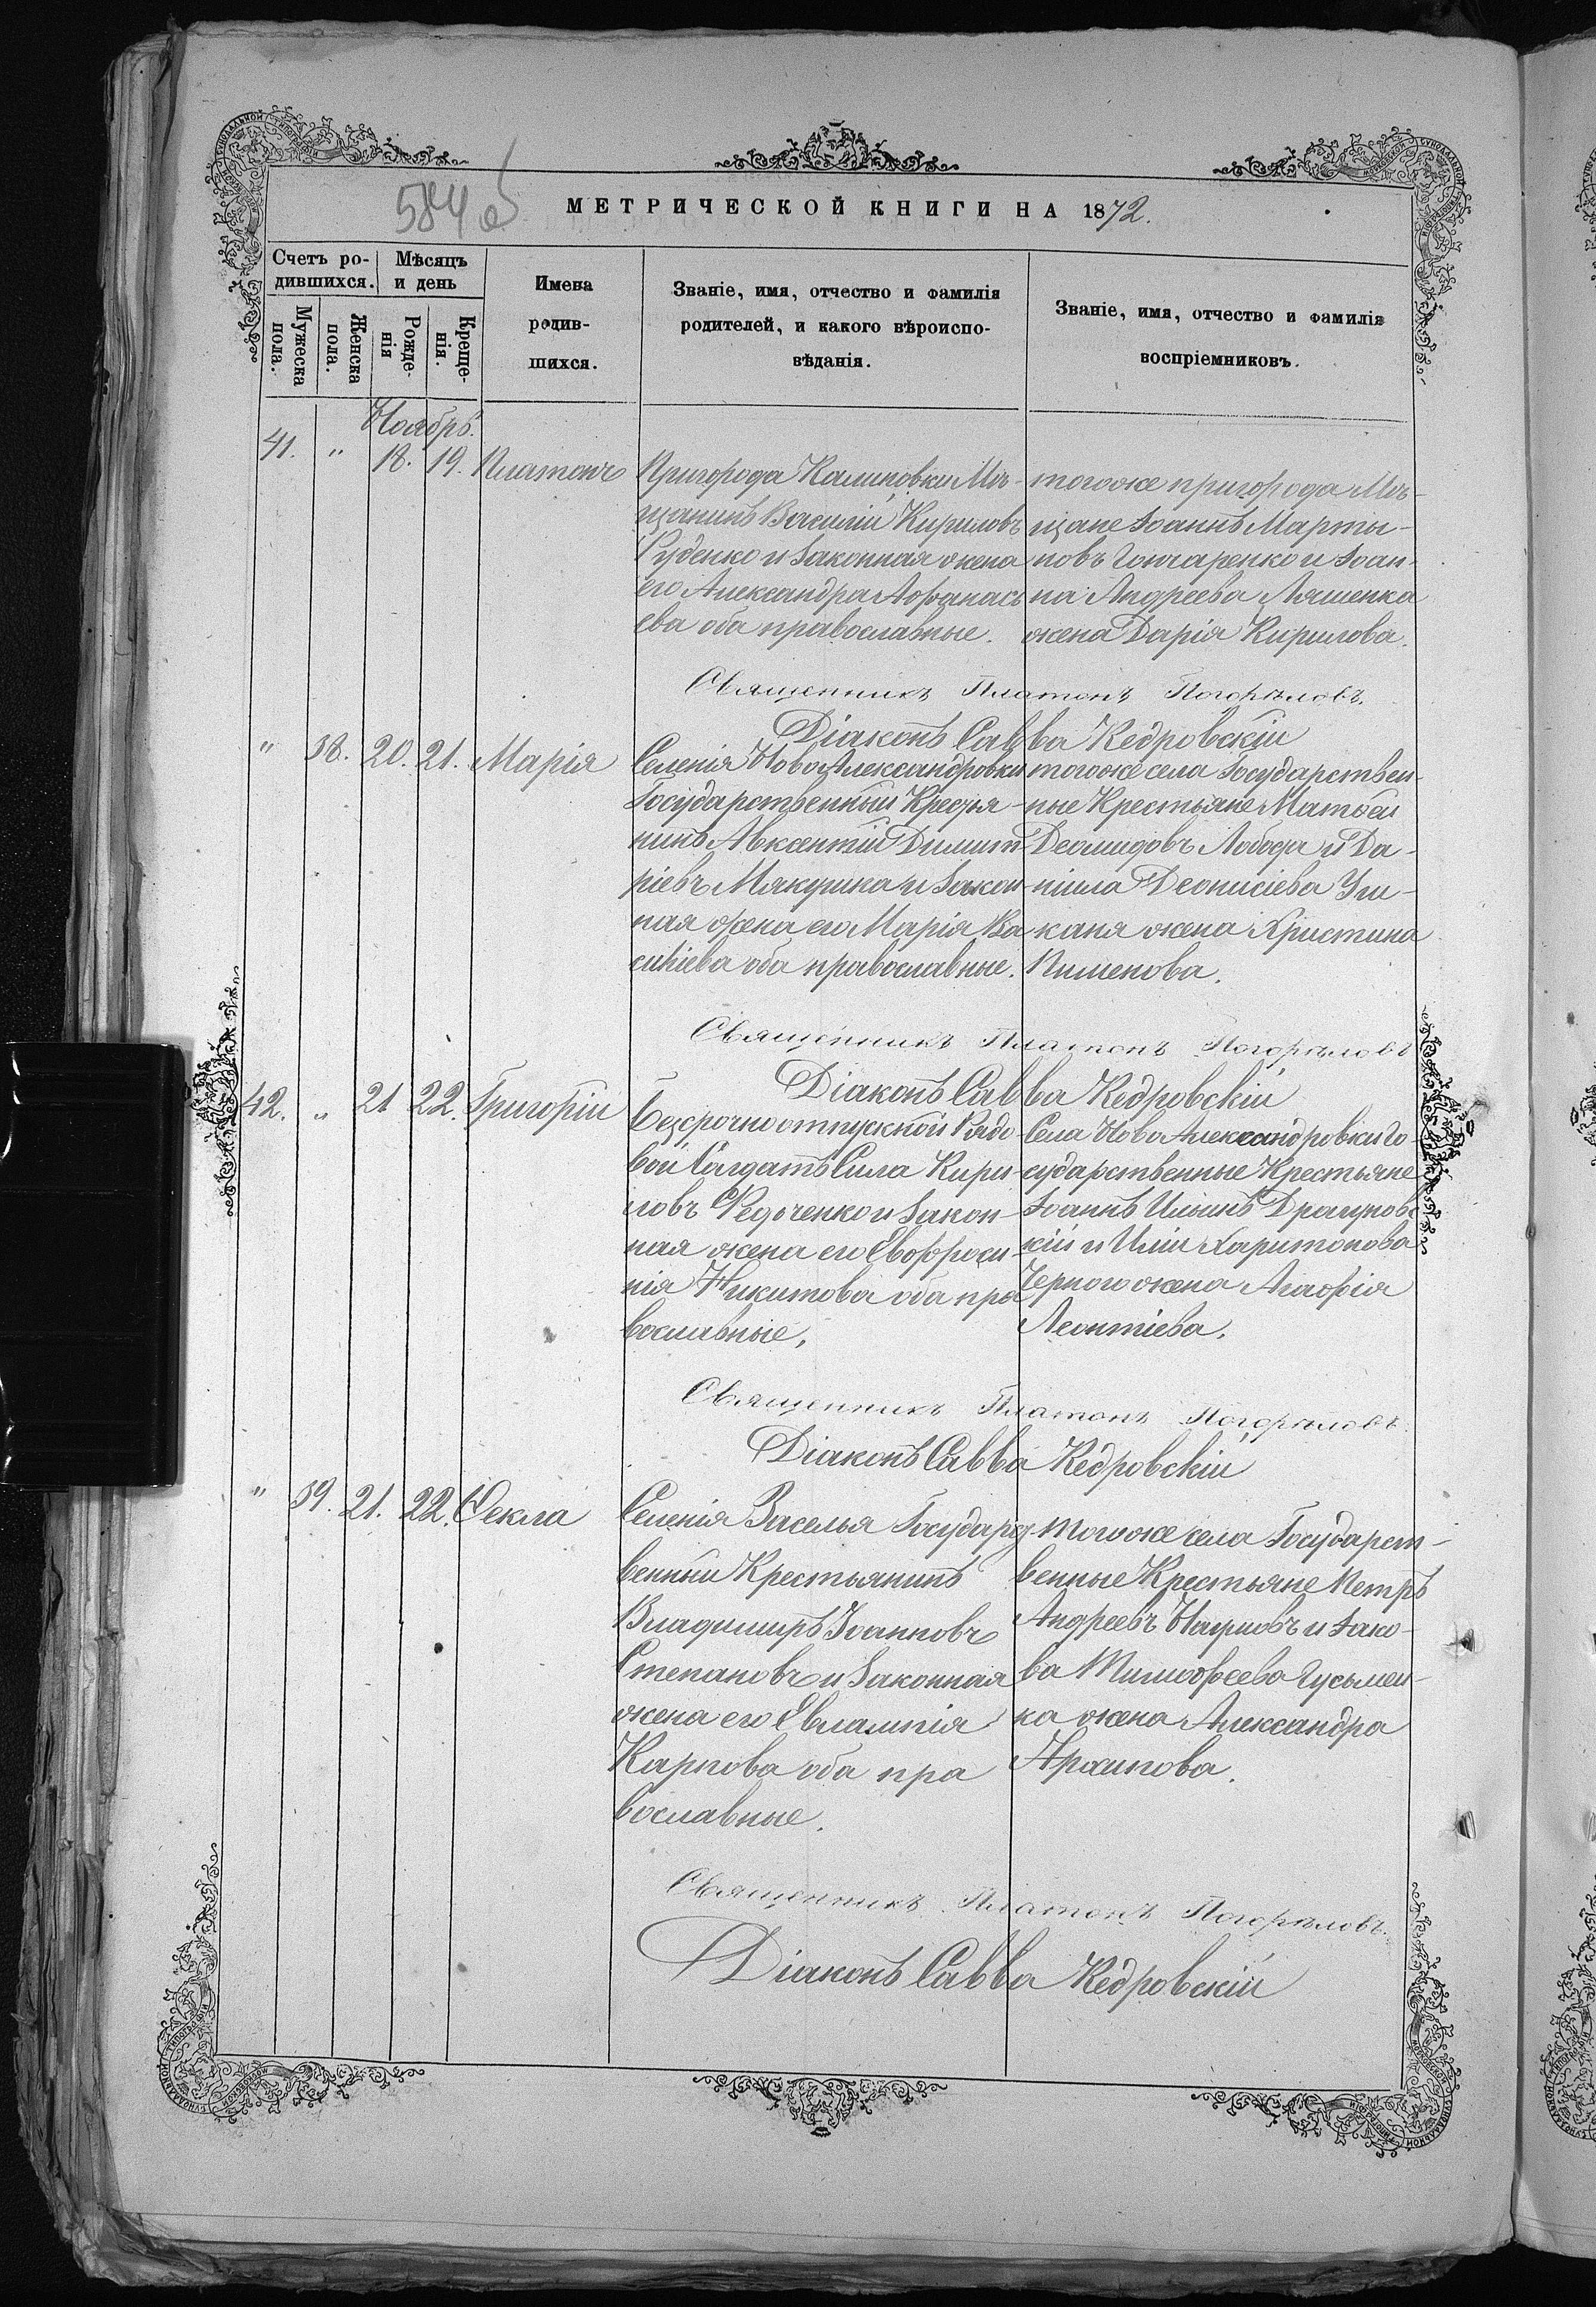 584 об
МЕТРИЧЕСКОЙ КНИГИ НА 1872.
Счетъ ро-
дившихся.
Мѣсяцъ
и день
Мужеска
пола.
Женска
пола.
Рожде-
нія
Креще-
нія.
Имена
родив-
шихся.
Званіе, имя, отчество и фамилія
родителей, и какого вѣроиспо-
вѣданія.
Званіе, имя, отчество и фамилія
воспріемниковъ.
Ноябрь.
41. " 18. 19. Платонъ
Пригорода Калиновки Мѣ-
щанинъ Василій Кириловъ
Руденко и законная жена
его Александра Афанась
ева оба православные.
тогоже пригорода Мѣ-
щане Іоаннъ Марты-
новъ Гончаренко и Іоан-
на Андреева Ляшенка
жена Дарія Кирилова.
Священникъ Платонъ Погорѣловъ.
Діаконъ Савва Кедровскій
" 38. 20. 21. Марія
Селенія НовоАлександровки
Государственный Крестья-
нинъ Авксентій Димит
ріевъ Мякушка и закон-
ная жена его Марія Ва
силіева оба православные.
тогоже села Государствен-
ные Крестьяне Матвей
Деомидовъ Лобода и Да-
ніила Деонисіева Уш-
каня жена Христина
Пименова.
Священникъ Платонъ Погорѣловъ
Діаконъ Савва Кедровскій
42. " 21 22. Григорій
Безсрочноотпускной Рядо-
вой Солдатъ Сила Кири-
ловъ Федоченко и закон-
ная жена его Евфроси
нія Никитова оба пра
вославные,
Села НовоАлександровки Го-
сударственные Крестьяне
Іоаннъ Ильинъ Драгунов
кій и Иліи Харитонова
Черного жена Агафія
Леонтіева.
Священникъ Платонъ Погорѣловъ.
Діаконъ Савва Кедровскій
" 39. 21. 22. Ѳекла
Селенія Васелья Государст
венный Крестьянинъ
Владимиръ Іоанновъ
Степановъ и законная
жена его Евлампія
Карпова оба пра
вославные.
Тогоже села Государст-
венные Крестьяне Петръ
Андреевъ Наумовъ и Іако-
ва Тимофеева Гусымен-
ка жена Александра
Архипова.
Священникъ Платонъ Погорѣловъ.
Діаконъ Савва Кедровскій